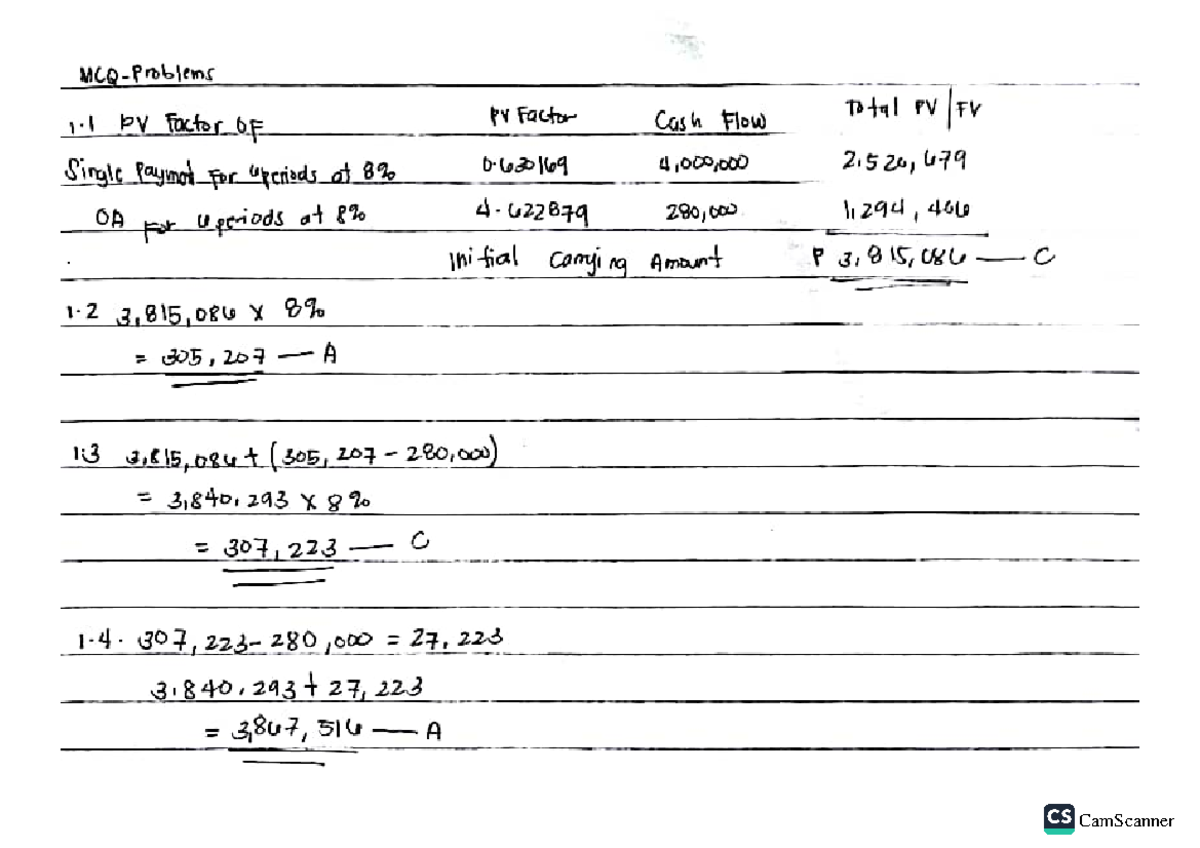 MCQ-Problems
1.1 PV Factor OF PV Factor Cash Flow Total PV/FV
Single Paymnt For 6periods at 8% 0.630169 4,000,000 2.520,679
OA For 6 periods at 8% 4.622879 280,000 1,294,406
Initial Carrying Amount P 3,815,086 — C
1.2 3,815,086 x 8%
= 305,207 — A
1.3 3,815,086 + (305,207 - 280,000)
= 3,840,293 x 8%
= 307,223 — C
1.4. 307,223 - 280,000 = 27,223
3,840,293 + 27,223
= 3,867,516 — A
CS CamScanner